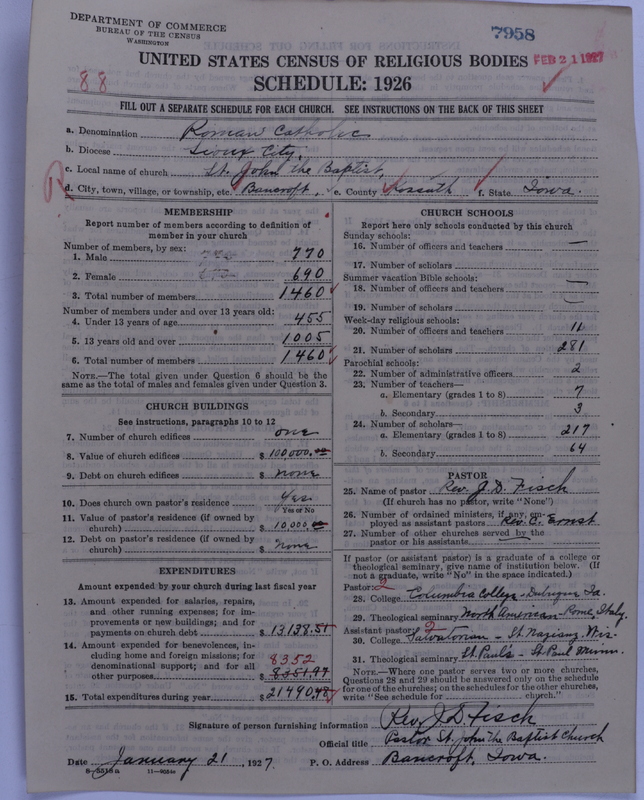 DEPARTMENT OF COMMERCE
BUREAU OF THE CENSUS
WASHINGTON
7958
FEB 21 1927
88
UNITED STATES CENSUS OF RELIGIOUS BODIES
SCHEDULE: 1926
FILL OUT A SEPARATE SCHEDULE FOR EACH CHURCH. SEE INSTRUCTIONS ON THE BACK OF THIS SHEET
a. Denomination Roman Catholic
b. Diocese Sioux City,
c. Local name of church St. John the Baptist,
d. City, town, village, or township, etc. Bancroft, e. County Kossuth f. State Iowa.
MEMBERSHIP
Report number of members according to definition of
member in your church
Number of members, by sex:
1. Male 770
2. Female 690
3. Total number of members 1460
Number of members under and over 13 years old:
4. Under 13 years of age 455
5. 13 years old and over 1005
6. Total number of members 1460
NOTE.—The total given under Question 6 should be the
same as the total of males and females given under Question 3.
CHURCH BUILDINGS
See instructions, paragraphs 10 to 12
7. Number of church edifices one
8. Value of church edifices $ 100000.00
9. Debt on church edifices $ none
10. Does church own pastor's residence Yes
Yes or No
11. Value of pastor's residence (if owned by
church) $ 10000.00
12. Debt on pastor's residence (if owned by
church) $ none
EXPENDITURES
Amount expended by your church during last fiscal year
13. Amount expended for salaries, repairs,
and other running expenses; for im-
provements or new buildings; and for
payments on church debt $ 13138.51
14. Amount expended for benevolences, in-
cluding home and foreign missions; for
denominational support; and for all
other purposes $ 8351.97
8352
15. Total expenditures during year $ 21490.48
CHURCH SCHOOLS
Report here only schools conducted by this church
Sunday schools:
16. Number of officers and teachers —
17. Number of scholars —
Summer vacation Bible schools:
18. Number of officers and teachers —
19. Number of scholars —
Week-day religious schools:
20. Number of officers and teachers 11
21. Number of scholars 281
Parochial schools:
22. Number of administrative officers 2
23. Number of teachers—
a. Elementary (grades 1 to 8) 7
b. Secondary 3
24. Number of scholars—
a. Elementary (grades 1 to 8) 217
b. Secondary 64
PASTOR
25. Name of pastor Rev. J. D. Fisch
(If church has no pastor, write "None")
26. Number of ordained ministers, if any, em-
ployed as assistant pastors Rev. C. Ernst
27. Number of other churches served by the
pastor or his assistants —
If pastor (or assistant pastor) is a graduate of a college or
theological seminary, give name of institution below. (If
not a graduate, write "No" in the space indicated.)
Pastor: 2
28. College Columbia College - Dubuque Ia.
29. Theological seminary North American - Rome, Italy.
Assistant pastor: 2
30. College Salvatorian - St. Nazianz, Wis.
31. Theological seminary St. Paul's - St. Paul Minn.
NOTE.—Where one pastor serves two or more churches,
Questions 28 and 29 should be answered only on the schedule
for one of the churches; on the schedules for the other churches,
write "See schedule for church."
Signature of person furnishing information Rev. J. D. Fisch
Official title Pastor St. John The Baptist Church
Date January 21, 1927. P. O. Address Bancroft, Iowa.
8-5518a 11-9054